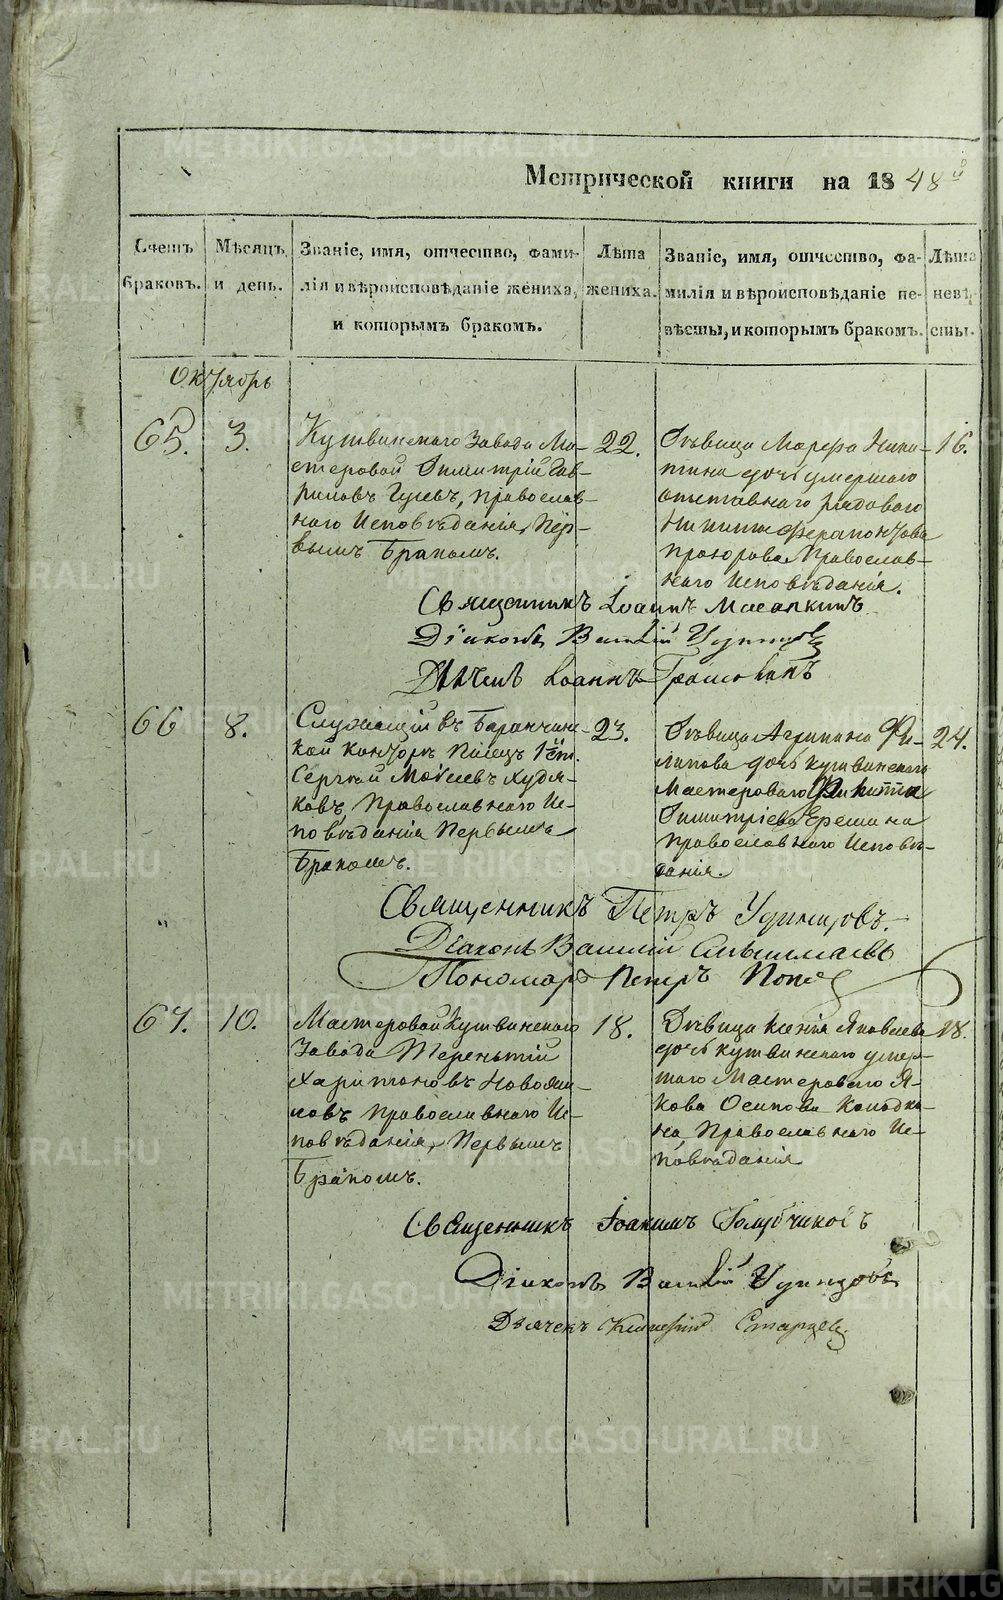 Метрической книги на 1848й
Счетъ браковъ.
Мѣсяцъ и день.
Званіе, имя, отчество, фами-
лія и вѣроисповѣданіе жениха,
и которымъ бракомъ.
Лѣта
жениха.
Званіе, имя, отчество, фа-
милія и вѣроисповѣданіе не-
вѣсты, и которымъ бракомъ.
Лѣта
невѣ-
сты.
Октябрь
65
3.
Кушвинскаго Завода Ма-
стеровой Димитрій Гав-
риловъ Гусевъ, православ-
наго Исповѣданія, Пер-
вымъ Бракомъ.
22.
Дѣвица Марфа Ники-
тина дочь умершаго
отставнаго рядоваго
Никиты Ферапонтова
Прохорова Православ-
наго Исповѣданія.
16.
Священникъ Іоаннъ
Діаконъ Василій Удинцовъ
Дьячекъ Іоаннъ
66
8.
Служащій въ Баранчин-
ской Конторѣ Писецъ 1 ст.
Сергѣй Моисеевъ Худя-
ковъ, Православнаго Ис-
повѣданія Первымъ
Бракомъ.
23.
Дѣвица Агрипина Фи-
липова дочь кушвинскаго
Мастероваго Филиппа
Димитріева Еремина
Православнаго Исповѣ-
данія.
24.
Священникъ Петръ Удинцовъ.
Діаконъ Василій
Пономарь Петръ Попов
67.
10.
Мастеровой Кушвинскаго
Завода Терентій
Харитоновъ Новожи-
ловъ Православнаго Ис-
повѣданія, Первымъ
Бракомъ.
18.
Дѣвица Ксенія Яковлева
дочь кушвинскаго умер-
шаго Мастероваго Я-
кова Осипова Колодки-
на, Православнаго Ис-
повѣданія
18.
Священникъ Іоакимъ Голубчиковъ
Діаконъ Василій Удинцовъ
Дьячекъ Старцев.
METRIKI.GASO-URAL.RU